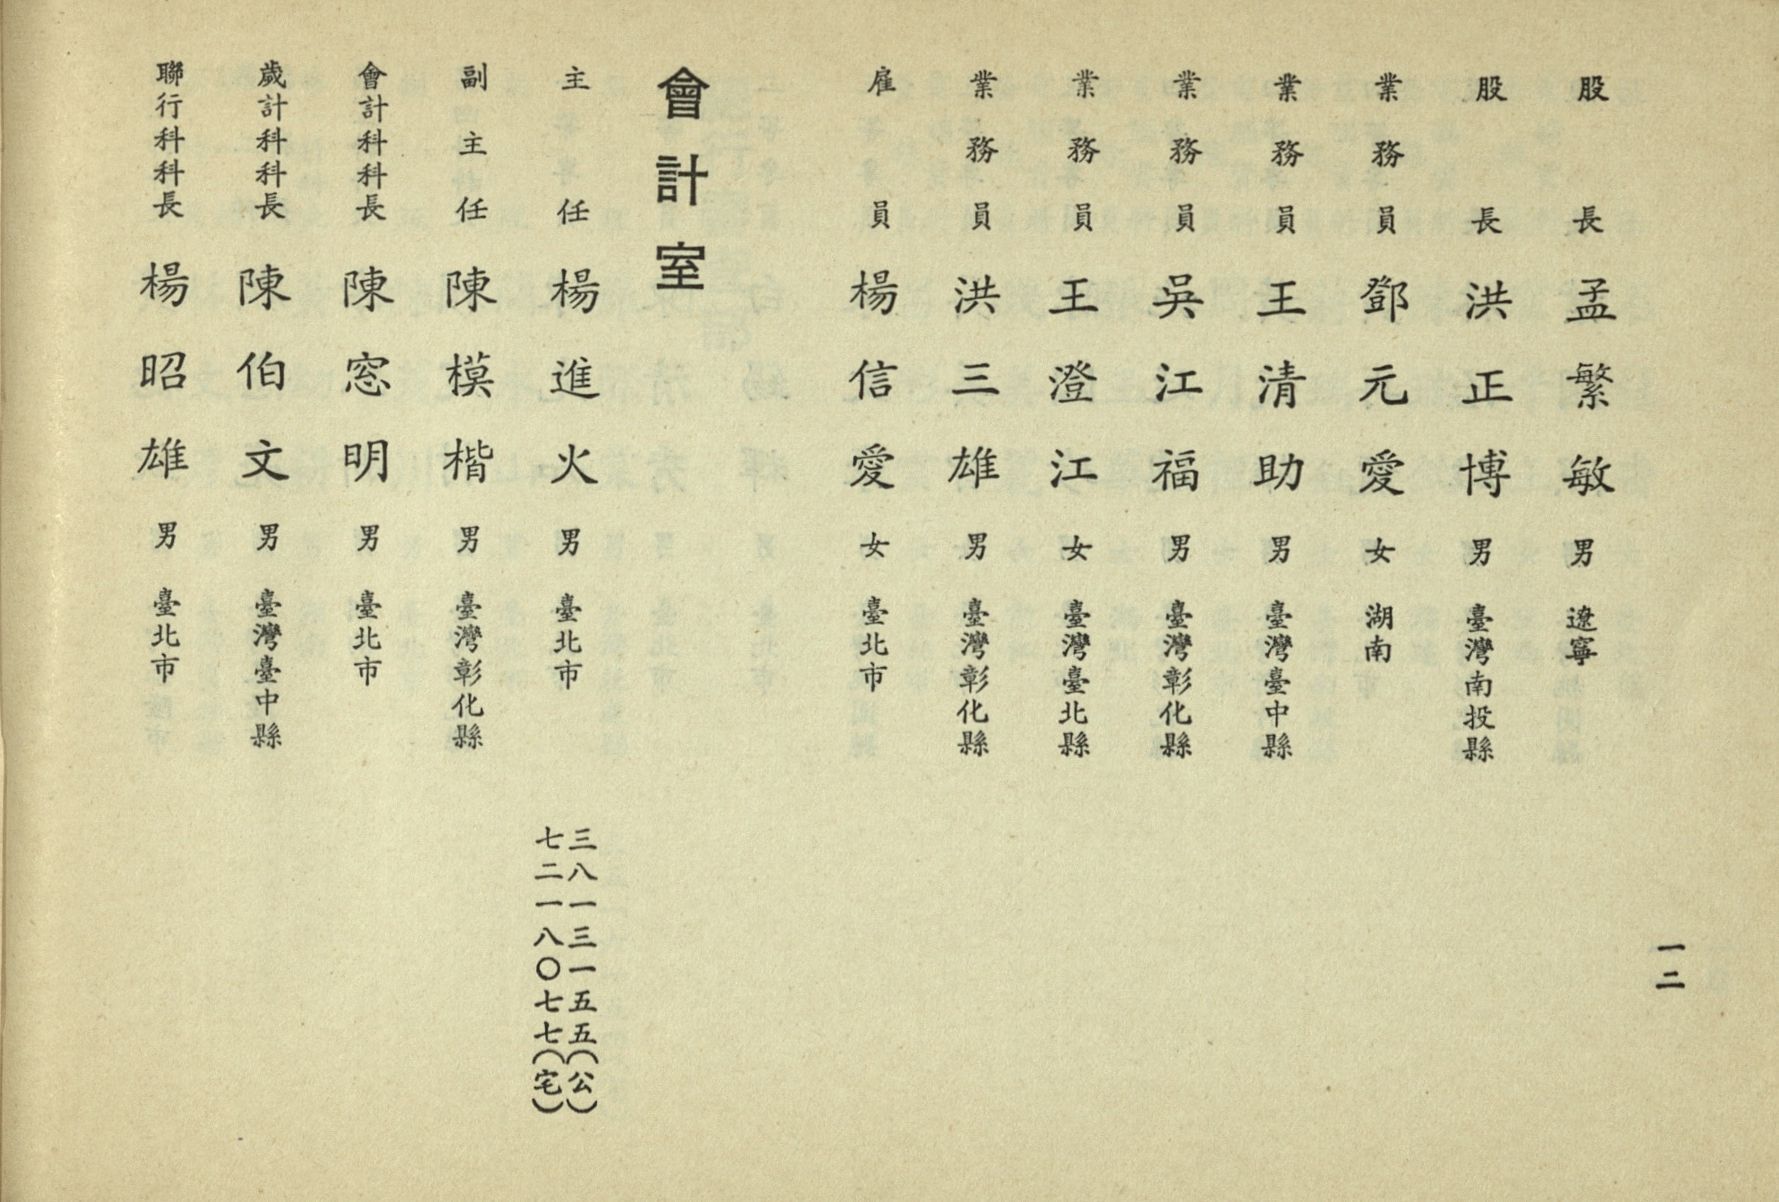 股長 孟繁敏 男 遼寧
股長 洪正博 男 臺灣南投縣
業務員 鄧元愛 女 湖南
業務員 王清助 男 臺灣臺中縣
業務員 吳江福 男 臺灣彰化縣
業務員 王澄江 女 臺灣臺北縣
業務員 洪三雄 男 臺灣彰化縣
雇員 楊信愛 女 臺北市
會計室
主任 楊進火 男 臺北市 三八一三一五五(公)
七二一八〇七七(宅)
副主任 陳模楷 男 臺灣彰化縣
會計科科長 陳窓明 男 臺北市
歲計科科長 陳伯文 男 臺灣臺中縣
聯行科科長 楊昭雄 男 臺北市
一二